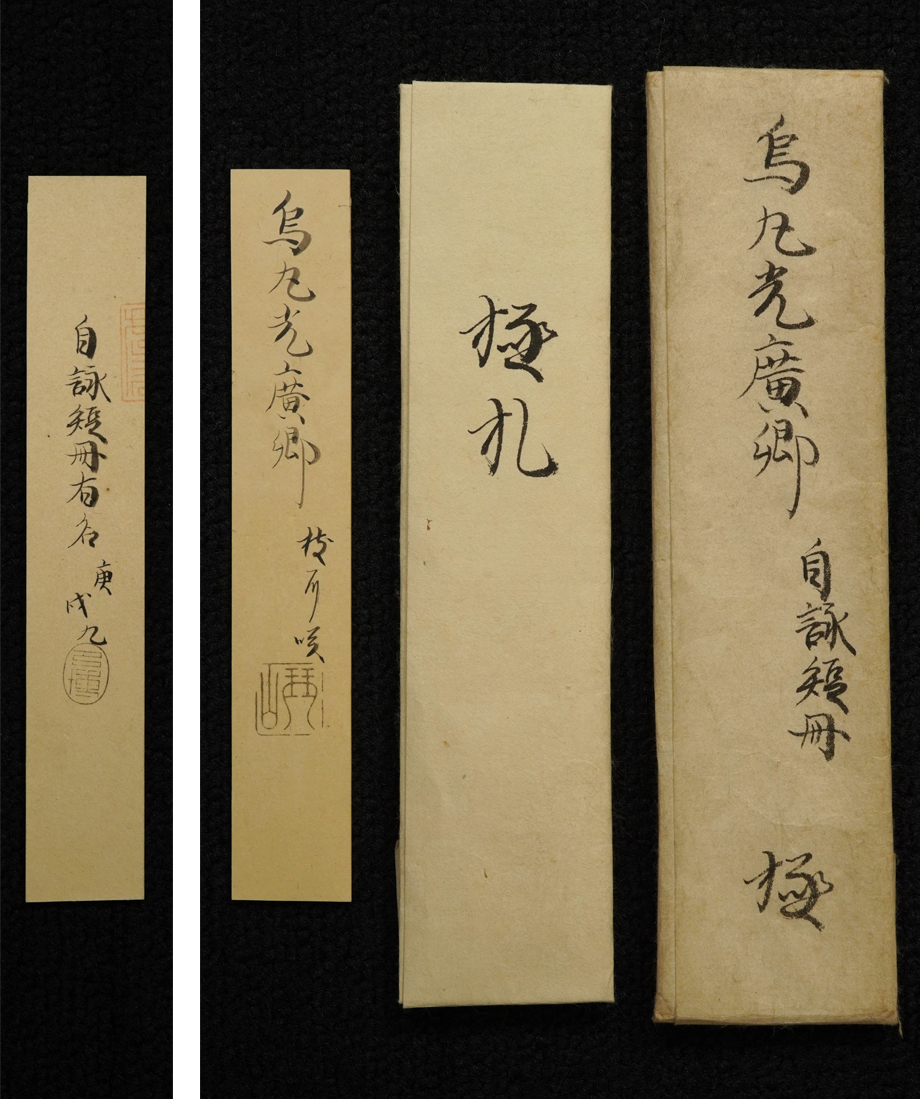 烏丸光廣卿
自詠短冊
極
極札
烏丸光廣卿
枝 咲
琴山
自詠短冊有名
庚
戌九